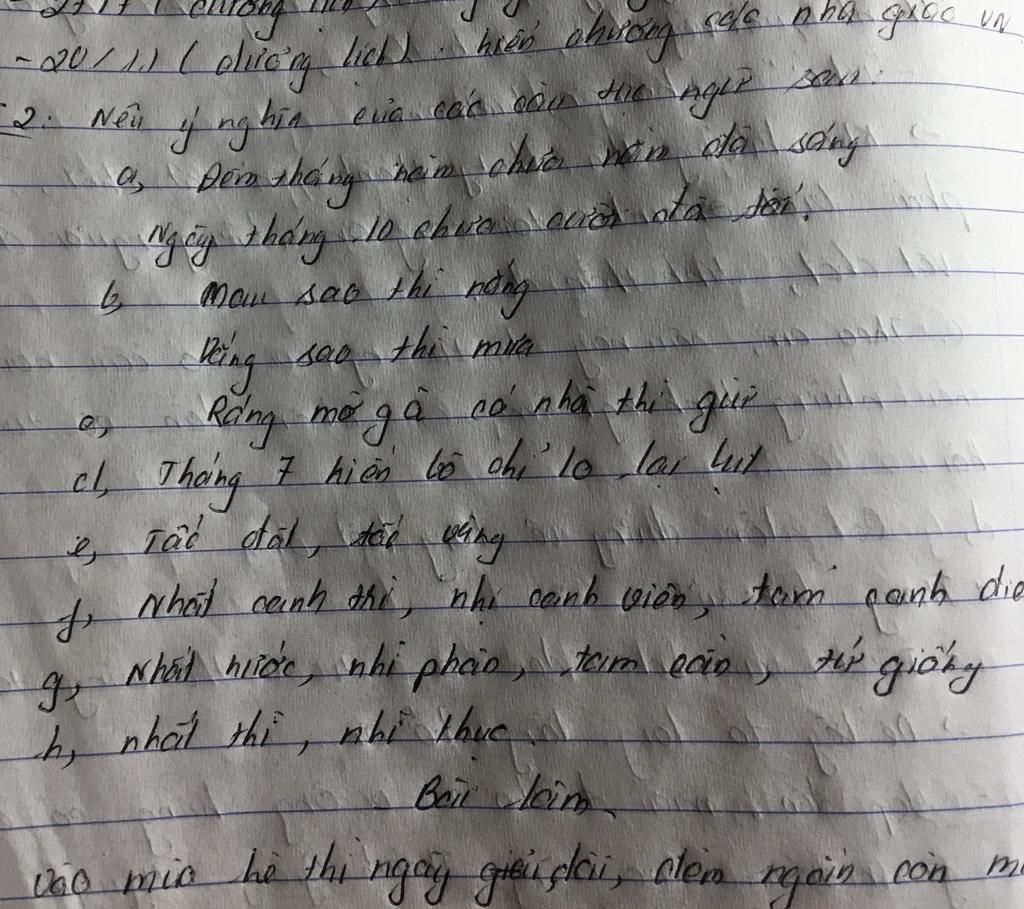 - 27/7 (dương lịch)
- 20/11 (dương lịch): hiến chương các nhà giáo VN
2: Nêu ý nghĩa của các câu tục ngữ sau:
a, Đêm tháng năm chưa nằm đã sáng
Ngày tháng 10 chưa cười đã tối.
b, Mau sao thì nắng
Vắng sao thì mưa
c, Ráng mỡ gà có nhà thì giữ
d, Tháng 7 kiến bò chỉ lo lại lụt
e, Tấc đất, tấc vàng
f, Nhất canh trì, nhị canh viên, tam canh điề
g, Nhất nước, nhì phân, tam cần, tứ giống
h, nhất thì, nhì thục.
Bài làm
Vào mùa hè thì ngày dài, đêm ngắn còn m